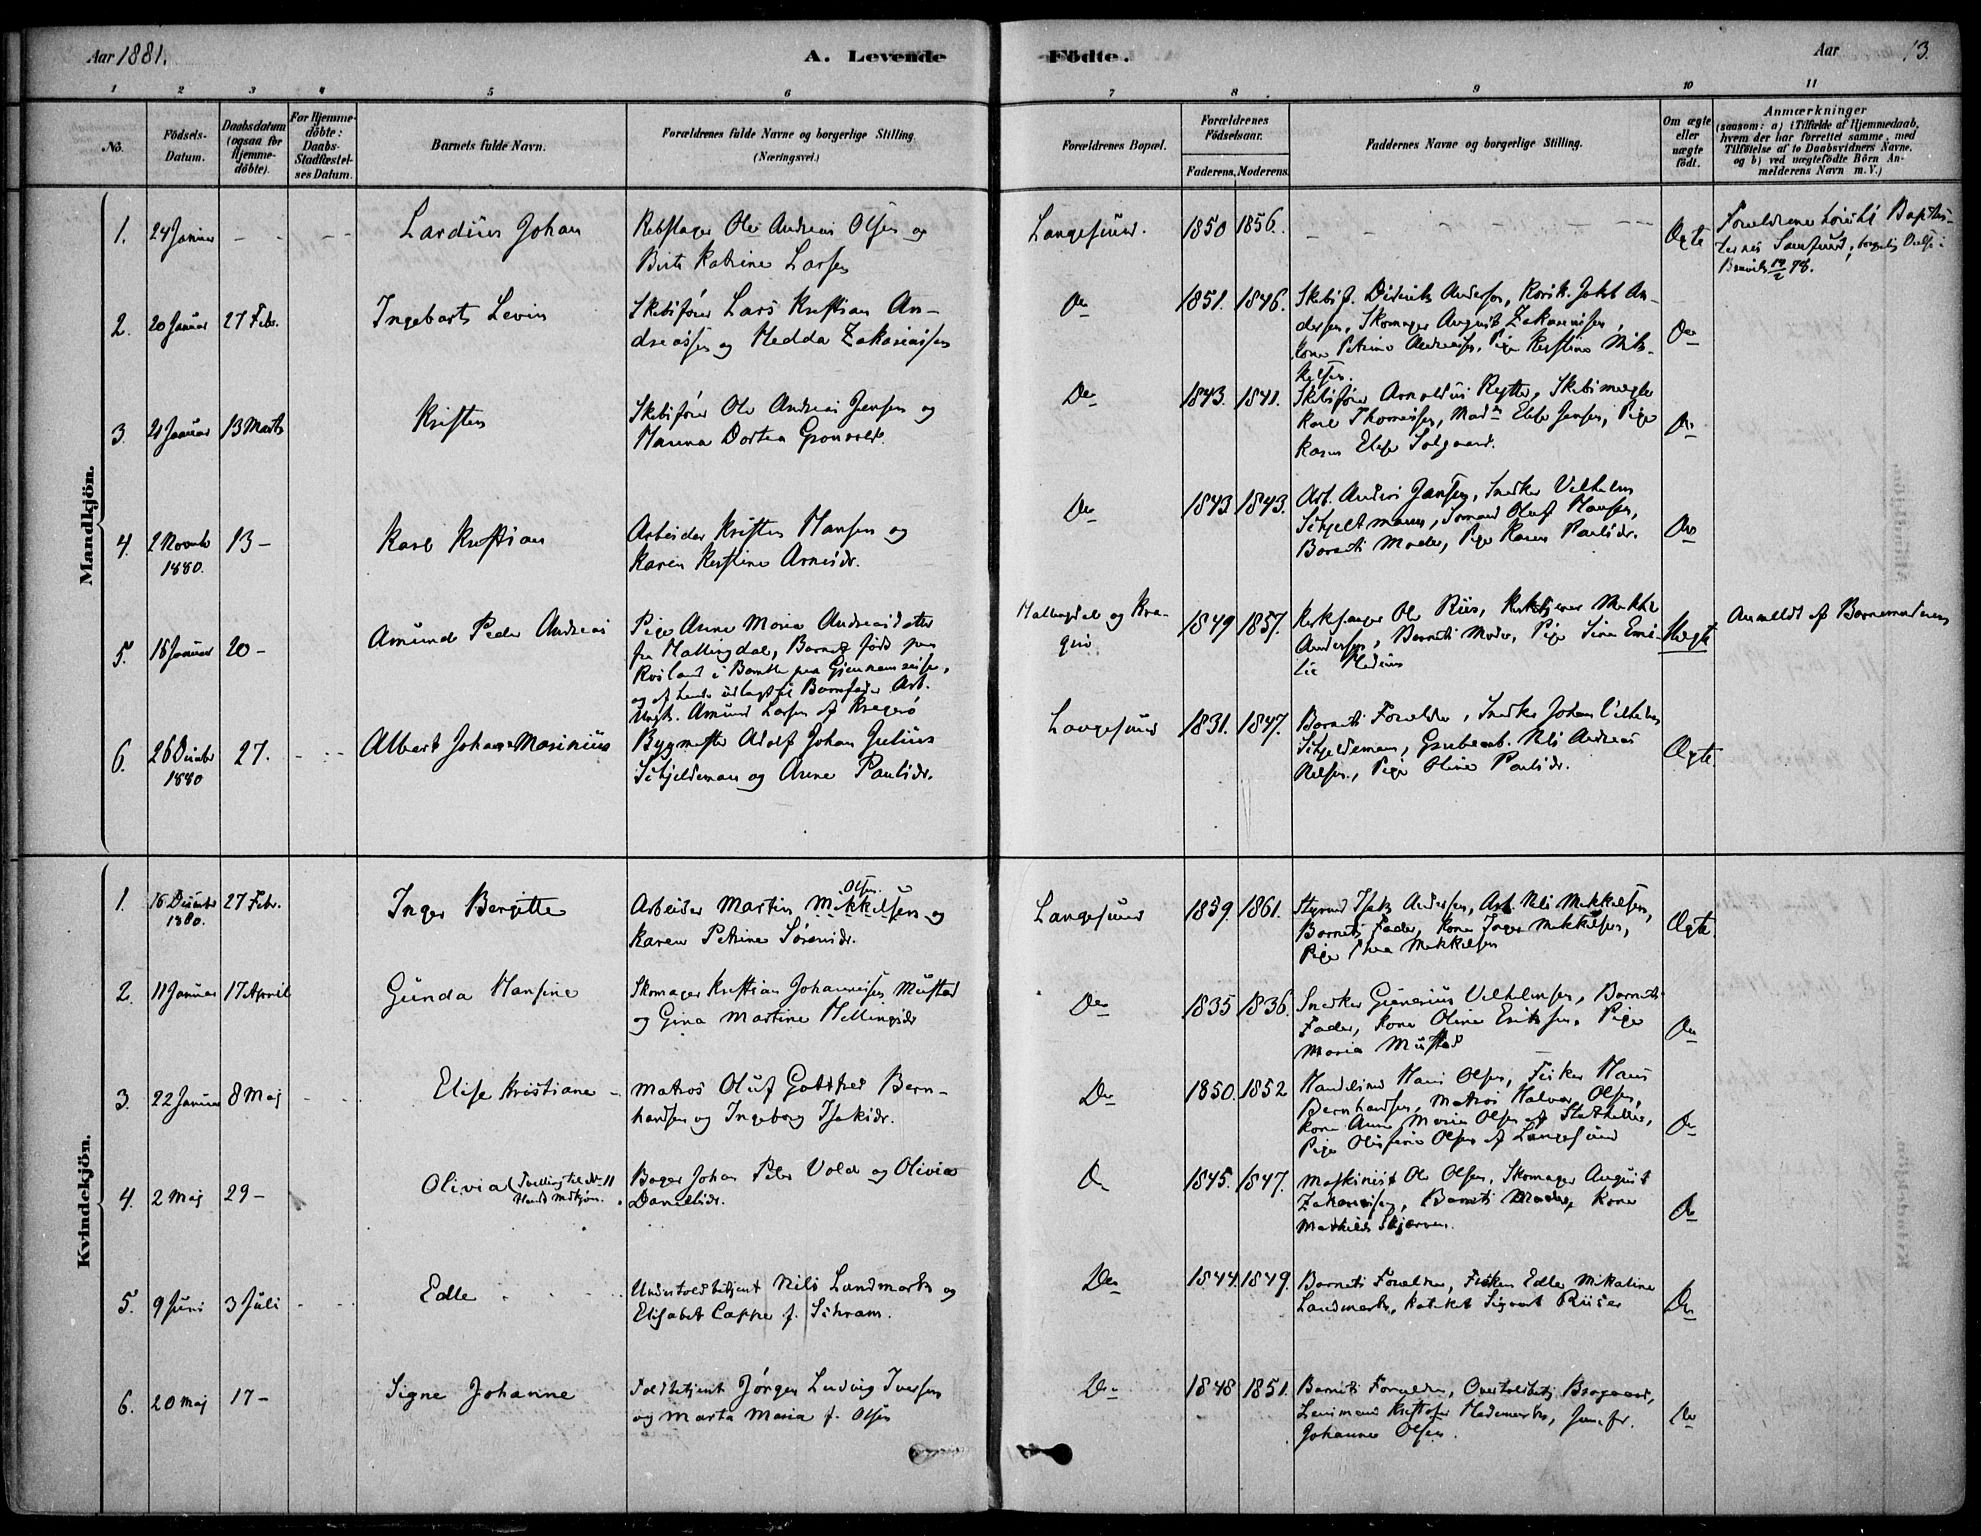 Aar 1881.
A. Levende
Födte.
Aar
13.
1 2 3 4 5 6 7 8 9 10 11
No.
Födsels-Datum.
Daabsdatum (ogsaa for Hjemme-döbte).
For Hjemme-döbte: Daabs-Stadfæstel-ses Datum.
Barnets fulde Navn.
Forældrenes fulde Navne og borgerlige Stilling.
(Næringsvei.)
Forældrenes Bopæl.
Forældrenes Födselsaar.
Faderens. Moderens.
Faddernes Navne og borgerlige Stilling.
Om ægte eller uægte födt.
Anmærkninger
(saasom: a) i Tilfælde af Hjemmedaab, hvem der har forrettet samme, med Tilföielse af to Daabsvidners Navne, og b) ved uægtefödte Börn An-melderens Navn m. V.)
Mandkjön.
1. 24 Januar - - - - Lardius Johan
Rebslager Ole Andreas Olsen og
Birte Katrine Larsen
Langesund. 1850 1856. - - - - Ægte
Forældrene
Samfund,
2. 20 Januar 27 Febr. Ingebart Levin
Skibsfører Lars Kristian An-
dreassen og Hedda Zakariassen
Do 1851. 1846.
Skibsf. Diderik Andersen, Jakob An-
dersen, Skomager August Zakariassen,
Kone Petrine Andreassen, Pige Kirstine Mik-
kelsen.
Do
3. 21 Januar 13 Marts Kristen
Skibsfører Ole Andreas Jensen og
Hanna Dortea Gronvold
Do 1843. 1841.
Skibsfører Arnoldus Rytter, Skibsmægler
Karl Thomassen, Mad. Elise Jensen, Pige
Karen Elise Solgaard.
Do
4. 2 Novmb 1880. 13 - Karl Kristian
Arbeider Kristen Hansen og
Karen Kirstine Arnesdr.
Do 1843 1843.
Arb. Anders Jansen, Snedker Vilhelm
Schjeltmann, Sømand Oluf Hansen,
Barnets Moder, Pige Karen Paulsdr.
Do
5. 16 Januar 20 - Amund Peder Andreas
Pige Anne Maria Andreasdatter
fra Hallingdal, Barnet født paa
i Bamble paa Gjennemreise,
og af hende udlagt til Barnefader Arb.
Ungk. Amund Larsen af Kragerø
Hallingdal og Kra-
gerø
1849 1857.
Kirksanger Ole Riis, Kirketjener Mikkel
Andersen, Barnets Moder, Pige Sina Emi-
lie
Uægte
Anmeldt af Barnemoderen
6. 26 Decmbr 1880 27. - - - Albert Johan Marinius
Bygmester Adolf Johan Julius
Schjeldeman og Anne Paulsdr.
Langesund 1831. 1847.
Barnets Forældre, Snedker Johan Vilhelm
Schjeldeman, Nils Andreas
Nielsen, Pige Oline Paulsdr.
Ægte
Kvindekjön.
1. 16 Decmbr 1880. 27 Febr. Inger Bergitte
Olsen.
Arbeider Martin Mikkelsen og
Karen Petrine Sørensdr.
Langesund 1839. 1861.
Styrmd Isak Andersen, Arb. Nils Mikkelsen,
Barnets Fader, Kone Inger Mikkelsen,
Pige Thea Mikkelsen
Ægte.
2. 11 Januar 17 April Gunda Hansine
Skomager Kristian Johannesen Mustad
og Gina Martine Hellingsdr
Do 1835 1836.
Snedker Gunerius Vilhelmsen, Barnets
Fader, Kone Oline Eriksen, Pige
Maria Mustad
Do
3. 22 Januar 8 Maj - - Elise Kristiane -
Matros Oluf Gotfred Bern-
hardsen og Ingeborg Isaksdr.
Do 1850. 1852
Handelsmd Hans Olsen, Fisker Hans
Bernhardsen, Matros Halvor Olsen,
Kone Anne Maria Olsen af Stathelle,
Pige Olufine Olsen af Langesund
Do
4. 2 Maj 29 - Olivia (Tvilling til No 11
Mandkjøn.
Bager Johan Peter Vold og Olivia
Danielsdr.
Do 1845. 1847.
Maskinist Ole Olsen, Skomager August
Zakariasen, Barnets Moder, Kone
Mathilde Skjerven.
Do
5. 9 Juni 3 Juli - - Edle - - -
Undertoldbetjent Nils Landmark og
Elisabet Cappe f. Schram.
Do 1844. 1849.
Barnets Forældre, Frøken Edle Mikaline
Landmark, Kateket Sigvart Riiser
Do
6. 20 Maj 17 - Signe Johanne
Toldbetjent Jørgen Ludvig Iversen
og Marta Maria f. Olsen
Do 1848 1851.
Barnets Forældre, Overtoldbetj.
Kristofer Hedemark, Jomfr.
Johanne Olsen.
Do